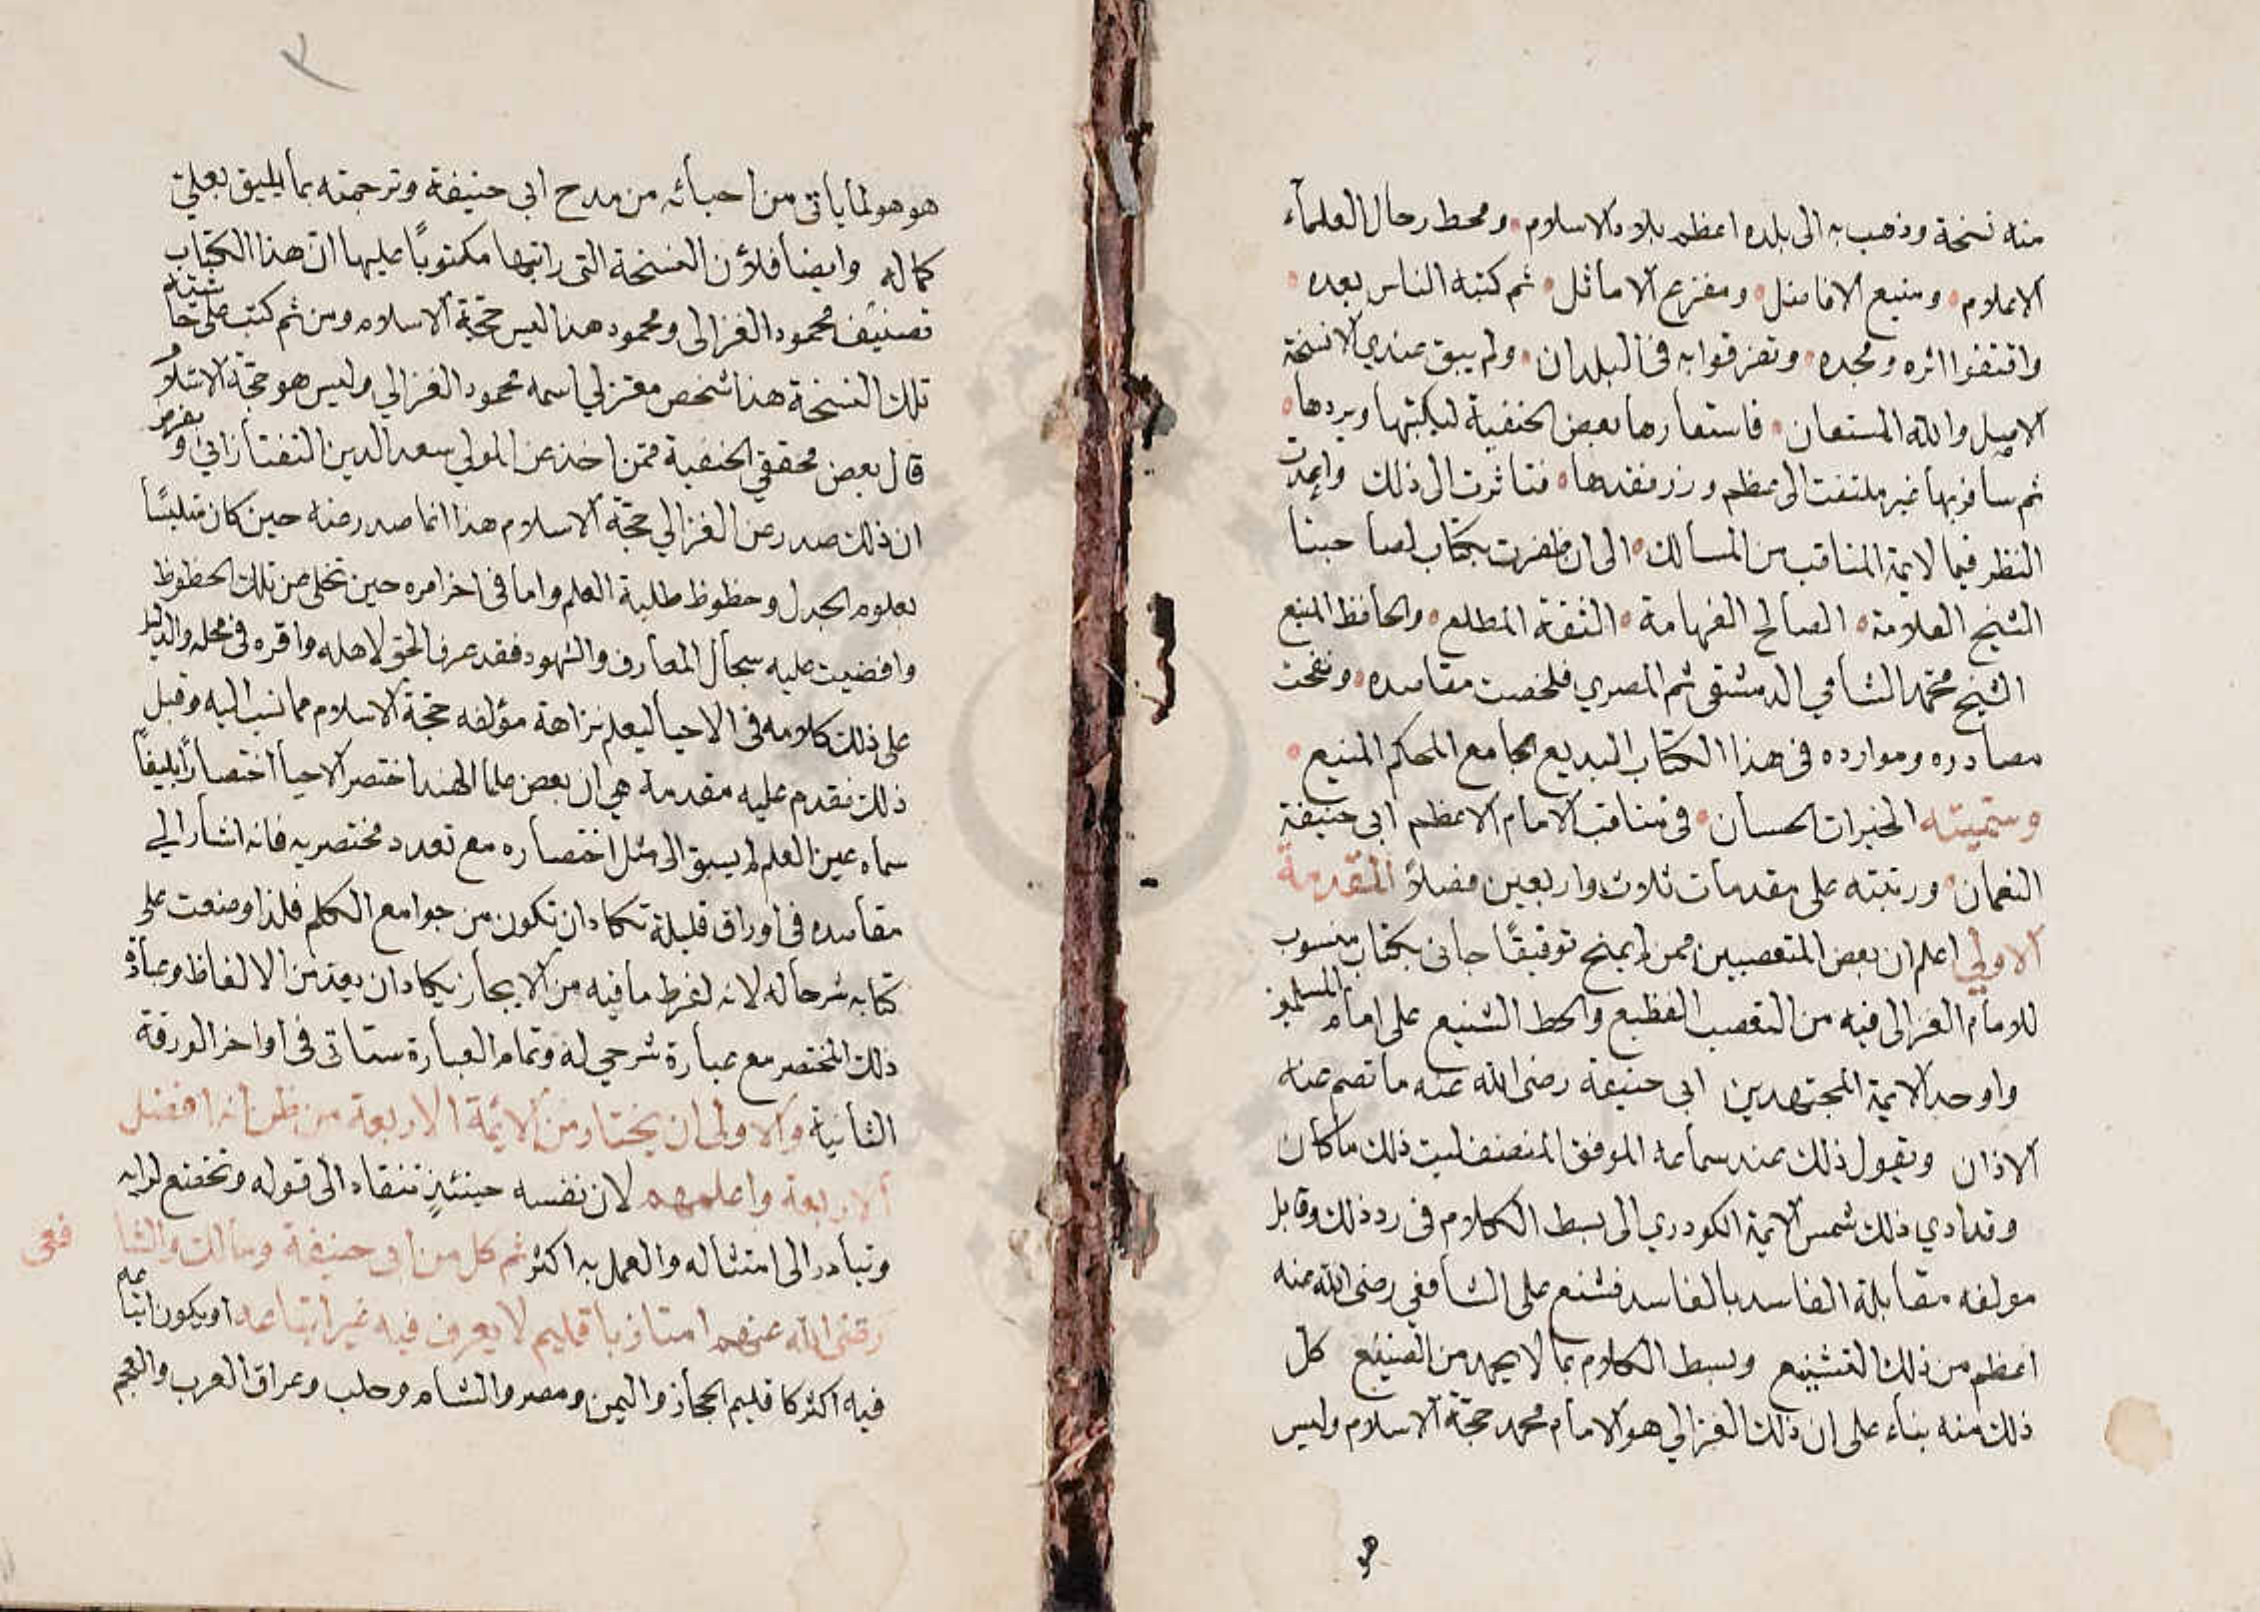 منه نسخة وذهب به الى بلده اعظم بلاد الاسلام ومحط رحال العلمآء
الاعلام ومنبع الافاضل ومفزع الاماثل ثم كتبه الناس بعده
واقتفوا اثره ومجده وتفرقوا به في البلدان ولم يبق عندي الا نسخة
الاصل والله المستعان فاستعارها بعض الحنفية ليكتبها ويردها
ثم سافر بها غير ملتفت الى عظم وزر فقدها فتاثرت الى ذلك وامعدت
النظر فيما لايمة المناقب من المسالك الى ان ظفرت بكتاب لصاحبنا
الشيخ العلامة الصالح الفهامة الثقة المطلع والحافظ المتبع
الشيخ محمد الشامي الدمشقى ثم المصري فلخصت مقاصده ونقحت
مصادره وموارده في هذا الكتاب البديع الجامع المحكم المنيع
وسميته الخيرات الحسان في مناقب الامام الاعظم ابى حنيفة
النعمان ورتبته على مقدمات ثلاث واربعين فصلاً المقدمة
الاولى اعلم ان بعض المتعصبين ممن لم يمنح توفيقًا جانى بكتاب منسوب
للامام الغزالى فيه من التعصب الفظيع والحط الشنيع على امام المسلمين
واوحد الايمة المجتهدين ابى حنيفة رضى الله عنه ما تصم عنه
الاذان ويقول ذلك عند سماعه الموفق المنصف ليت ذلك ما كان
وقد ادي ذلك شمس الايمة الكردري الى بسط الكلام في رد ذلك وقابل
مولفه مقابلة الفاسد بالفاسد فشنع على الشافعي رضى الله عنه
اعظم من ذلك التشنيع وبسط الكلام بما لا يحمد من الصنيع كل
ذلك منه بناء على ان ذلك الغزالي هو الامام محمد حجة الاسلام وليس
هو
هو هو لما ياتى من احيائه من مدح ابى حنيفة وترجمته بما يليق بعلي
كماله وايضا فلأن النسخة التى رايتها مكتوبًا عليها ان هذا الكتاب
تصنيف محمود الغزالى ومحمود هذا ليس حجة الاسلام ومن ثم كتب على حاشية
تلك النسخة هذا شخص معتزلي اسمه محمود الغزالي وليس هو حجة الاسلام
قال بعض محققي الحنفية ممن اخذ عن المولي سعد الدين التفتازاني وبفرض
ان ذلك صدر عن الغزالي حجة الاسلام هذا انما صدر عنه حين كان متلبسًا
بعلوم الجدل وحظوظ طلبة العلم واما في اخر امره حين تخلى من تلك الحظوظ
وافضيت عليه سجال المعارف والشهود فقد عرف الحق لاهله واقره في محله والدليل
على ذلك كلامه في الاحيا ليعلم نزاهة مؤلفه حجة الاسلام مما نسب اليه وقبل
ذلك نقدم عليه مقدمة هي ان بعض علما الهند اختصر الاحيا اختصارًا بليغًا
سماه عين العلم لم يسبق الى مثل اختصاره مع تعدد مختصريه فانه اشار الي
مقاصده في اوراق قليلة تكاد ان تكون من جوامع الكلم فلذا وضعت على
كتابه شرحا له لانه لفرط ما فيه من الايجاز يكاد ان يعد من الالغاز وعبارة
ذلك المختصر مع عبارة شرحي له وتمام العبارة ستاتى في اواخر الورقة
الثانية والاولى ان يختار من الايمة الاربعة من ظن انه افضل
الاربعة واعلمهم لان نفسه حينئذٍ تنقاد الى قوله وتخضع لرايه
وتبادر الى امتثاله والعمل به اكثر ثم كل من ابى حنيفة ومالك والشافعى
رضى الله عنهم امتاز باقليم لا يعرف فيه غير اتباعه او يكون اتباعه
فيه اكثر كاقليم الحجاز واليمن ومصر والشام وحلب وعراق العرب والعجم